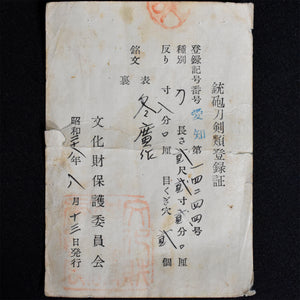 銃砲刀剣類登録証
登録記号番号 愛知 第一四二四四号
種別 刀 長さ 貳尺貳寸貳分〇厘
反り 寸八分〇厘 目くぎ穴 貳個
銘文 表 冬廣作
裏
昭和三八年八月十三日発行
文化財保護委員会